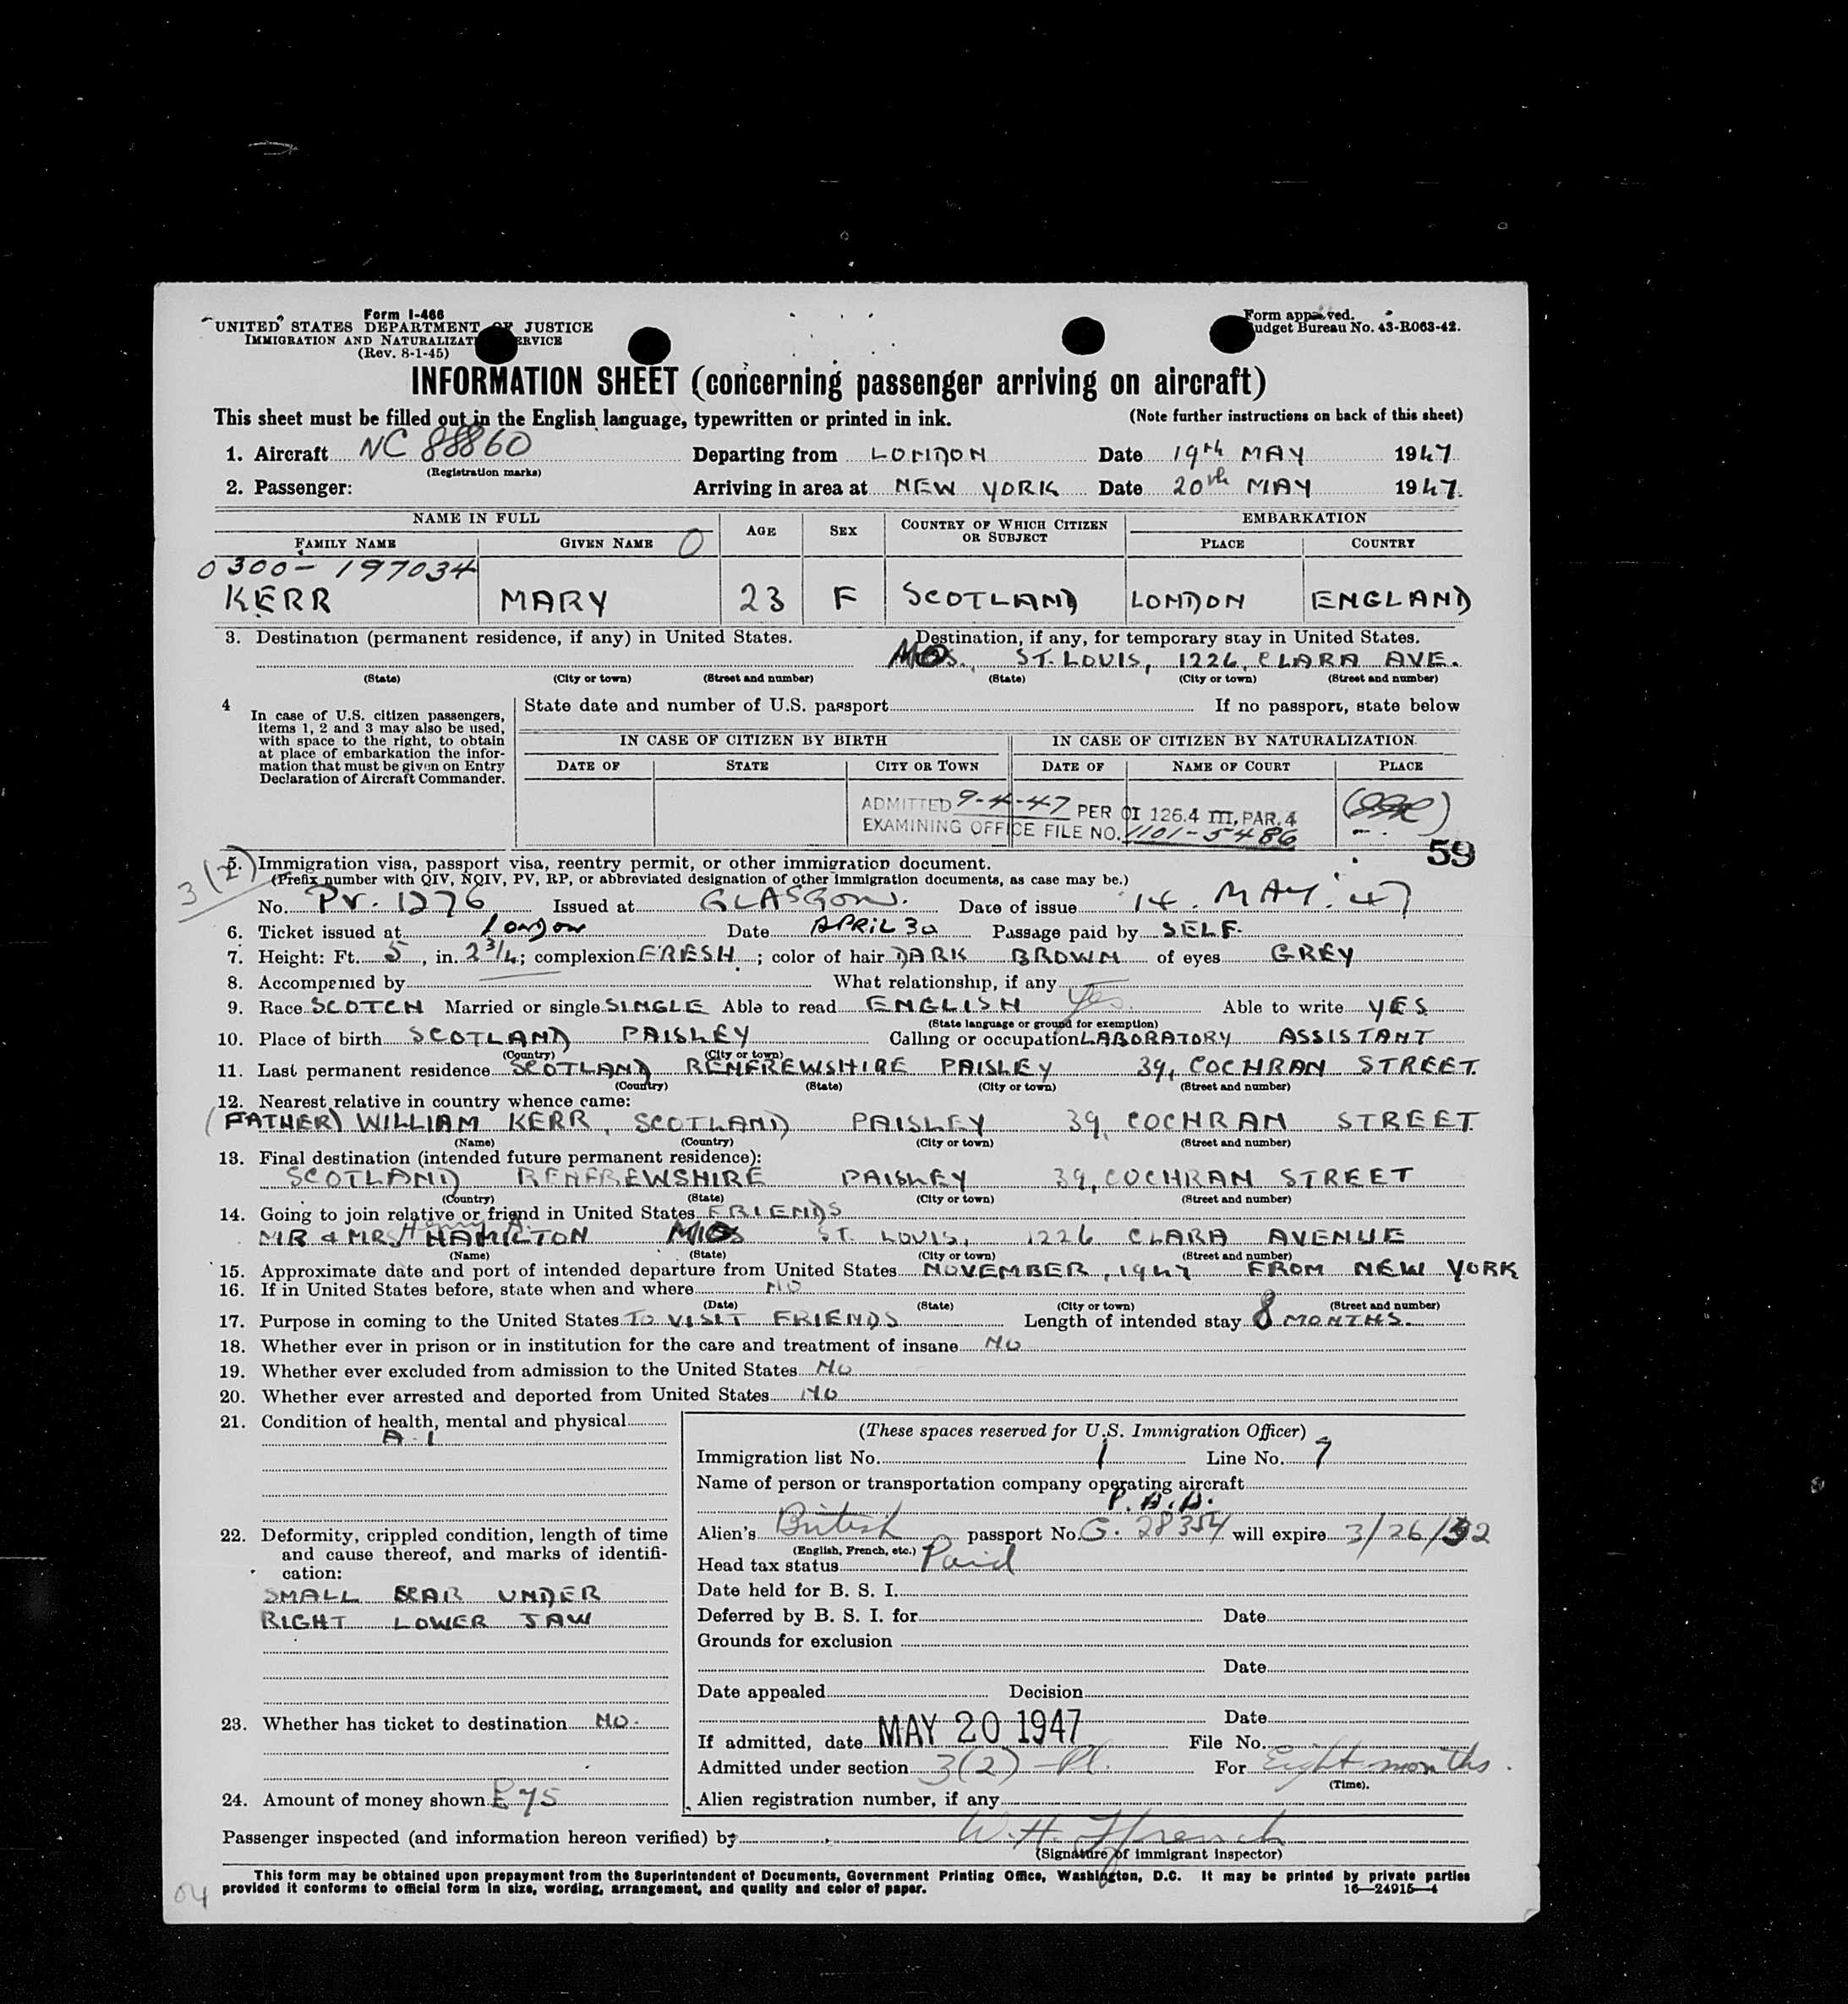 Form I-466
UNITED STATES DEPARTMENT OF JUSTICE
IMMIGRATION AND NATURALIZATION SERVICE
(Rev. 8-1-45)
Form approved.
Budget Bureau No. 43-R063-42.
INFORMATION SHEET (concerning passenger arriving on aircraft)
This sheet must be filled out in the English language, typewritten or printed in ink. (Note further instructions on back of this sheet)
1. Aircraft NC 88860 Departing from LONDON Date 19th MAY 1947
(Registration marks)
2. Passenger: Arriving in area at NEW YORK Date 20th MAY 1947.
NAME IN FULL AGE SEX COUNTRY OF WHICH CITIZEN OR SUBJECT EMBARKATION
FAMILY NAME GIVEN NAME O PLACE COUNTRY
0300-197034
KERR MARY 23 F SCOTLAND LONDON ENGLAND
3. Destination (permanent residence, if any) in United States. Destination, if any, for temporary stay in United States.
MO ST. LOUIS, 1226, CLARA AVE.
(State) (City or town) (Street and number) (State) (City or town) (Street and number)
4 In case of U.S. citizen passengers, items 1, 2 and 3 may also be used, with space to the right, to obtain at place of embarkation the information that must be given on Entry Declaration of Aircraft Commander.
State date and number of U.S. passport If no passport, state below
IN CASE OF CITIZEN BY BIRTH IN CASE OF CITIZEN BY NATURALIZATION
DATE OF STATE CITY OR TOWN DATE OF NAME OF COURT PLACE
ADMITTED 9-4-47 PER OI 126.4 III, PAR. 4
EXAMINING OFFICE FILE NO. 1101-5486
59
3(2)
5. Immigration visa, passport visa, reentry permit, or other immigration document.
(Prefix number with QIV, NQIV, PV, RP, or abbreviated designation of other immigration documents, as case may be.)
No. PV. 1276 Issued at GLASGOW. Date of issue 14. MAY. 47
6. Ticket issued at London Date APRIL 30 Passage paid by SELF.
7. Height: Ft. 5, in. 2 3/4; complexion FRESH; color of hair DARK BROWN of eyes GREY
8. Accompanied by What relationship, if any
9. Race SCOTCH Married or single SINGLE Able to read ENGLISH Yes. Able to write YES
(State language or ground for exemption)
10. Place of birth SCOTLAND PAISLEY Calling or occupation LABORATORY ASSISTANT
(Country) (City or town)
11. Last permanent residence SCOTLAND RENFREWSHIRE PAISLEY 39, COCHRAN STREET.
(Country) (State) (City or town) (Street and number)
12. Nearest relative in country whence came:
(FATHER) WILLIAM KERR, SCOTLAND PAISLEY 39, COCHRAN STREET.
(Name) (Country) (City or town) (Street and number)
13. Final destination (intended future permanent residence):
SCOTLAND RENFREWSHIRE PAISLEY 39, COCHRAN STREET
(Country) (State) (City or town) (Street and number)
14. Going to join relative or friend in United States FRIENDS
Henry A.
MR & MRS HAMILTON MO ST. LOUIS, 1226 CLARA AVENUE
(Name) (State) (City or town) (Street and number)
15. Approximate date and port of intended departure from United States NOVEMBER, 1947 FROM NEW YORK
16. If in United States before, state when and where NO
(Date) (State) (City or town) (Street and number)
17. Purpose in coming to the United States TO VISIT FRIENDS Length of intended stay 8 MONTHS.
18. Whether ever in prison or in institution for the care and treatment of insane NO
19. Whether ever excluded from admission to the United States NO
20. Whether ever arrested and deported from United States NO
21. Condition of health, mental and physical
A.1
22. Deformity, crippled condition, length of time and cause thereof, and marks of identification:
SMALL SCAR UNDER
RIGHT LOWER JAW
23. Whether has ticket to destination NO.
24. Amount of money shown £75
(These spaces reserved for U.S. Immigration Officer)
Immigration list No. 1 Line No. 7
Name of person or transportation company operating aircraft
P.A.A.
Alien's British passport No. G. 28354 will expire 3/26/52
(English, French, etc.)
Head tax status Paid
Date held for B. S. I.
Deferred by B. S. I. for Date
Grounds for exclusion
Date
Date appealed Decision
Date
If admitted, date MAY 20 1947 File No.
Admitted under section 3(2) For Eight months.
(Time).
Alien registration number, if any
Passenger inspected (and information hereon verified) by W.H. Ffrench
(Signature of immigrant inspector)
This form may be obtained upon prepayment from the Superintendent of Documents, Government Printing Office, Washington, D.C. It may be printed by private parties
provided it conforms to official form in size, wording, arrangement, and quality and color of paper. 16—24915-4
04